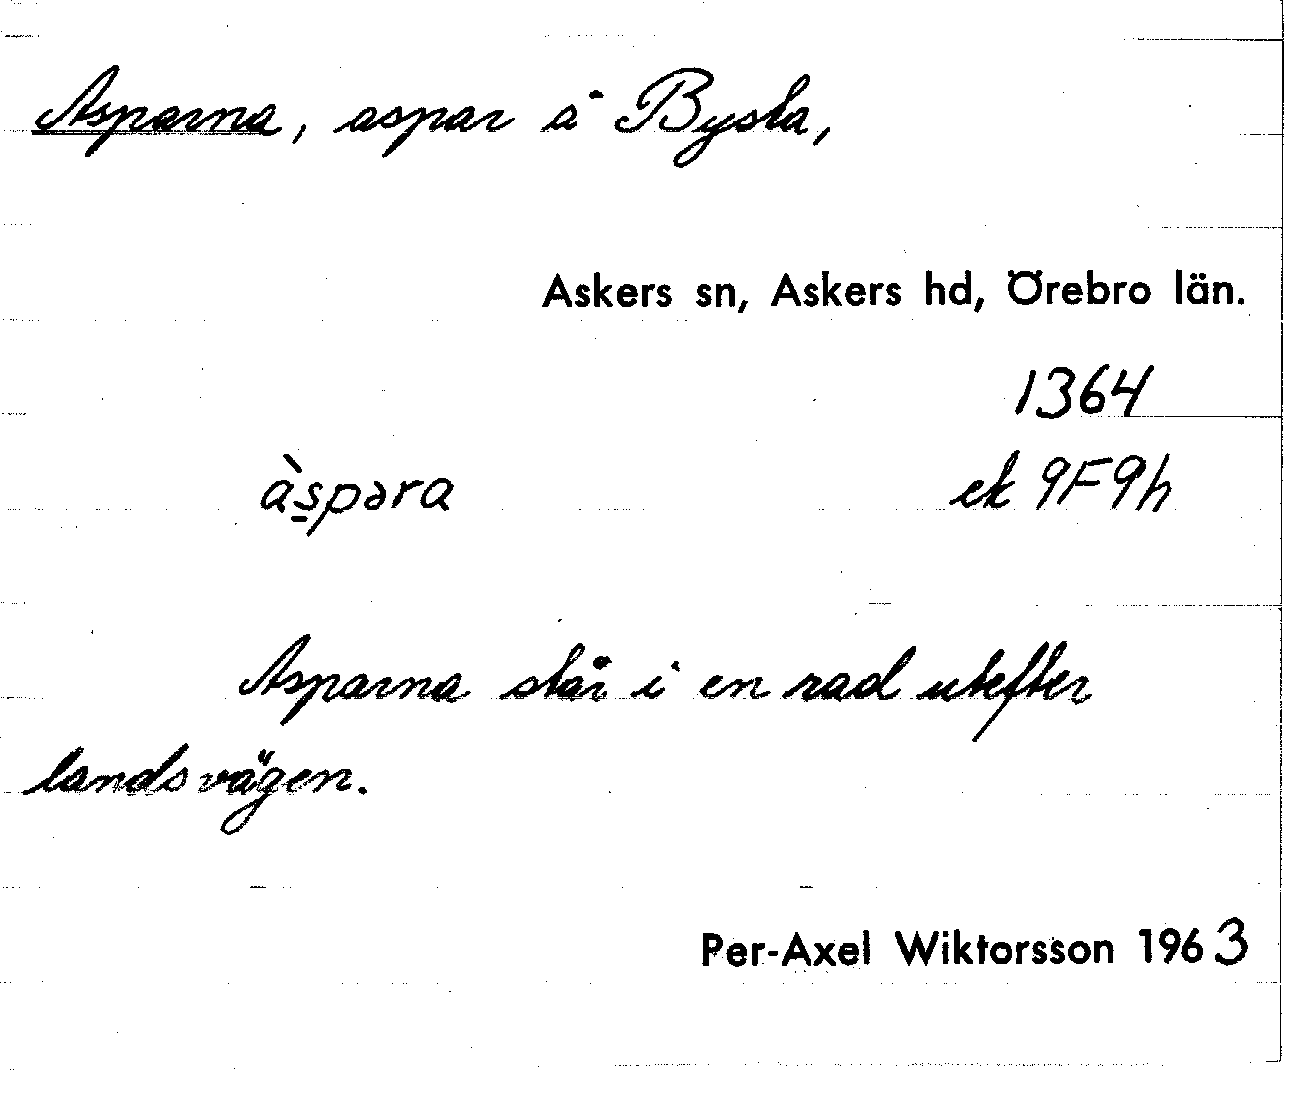 Asparna, aspar å Bysta,
Askers sn, Askers hd, Örebro län.
1364
àspəra
ek 9F9h
Asparna står i en rad utefter
landsvägen.
Per-Axel Wiktorsson 1963